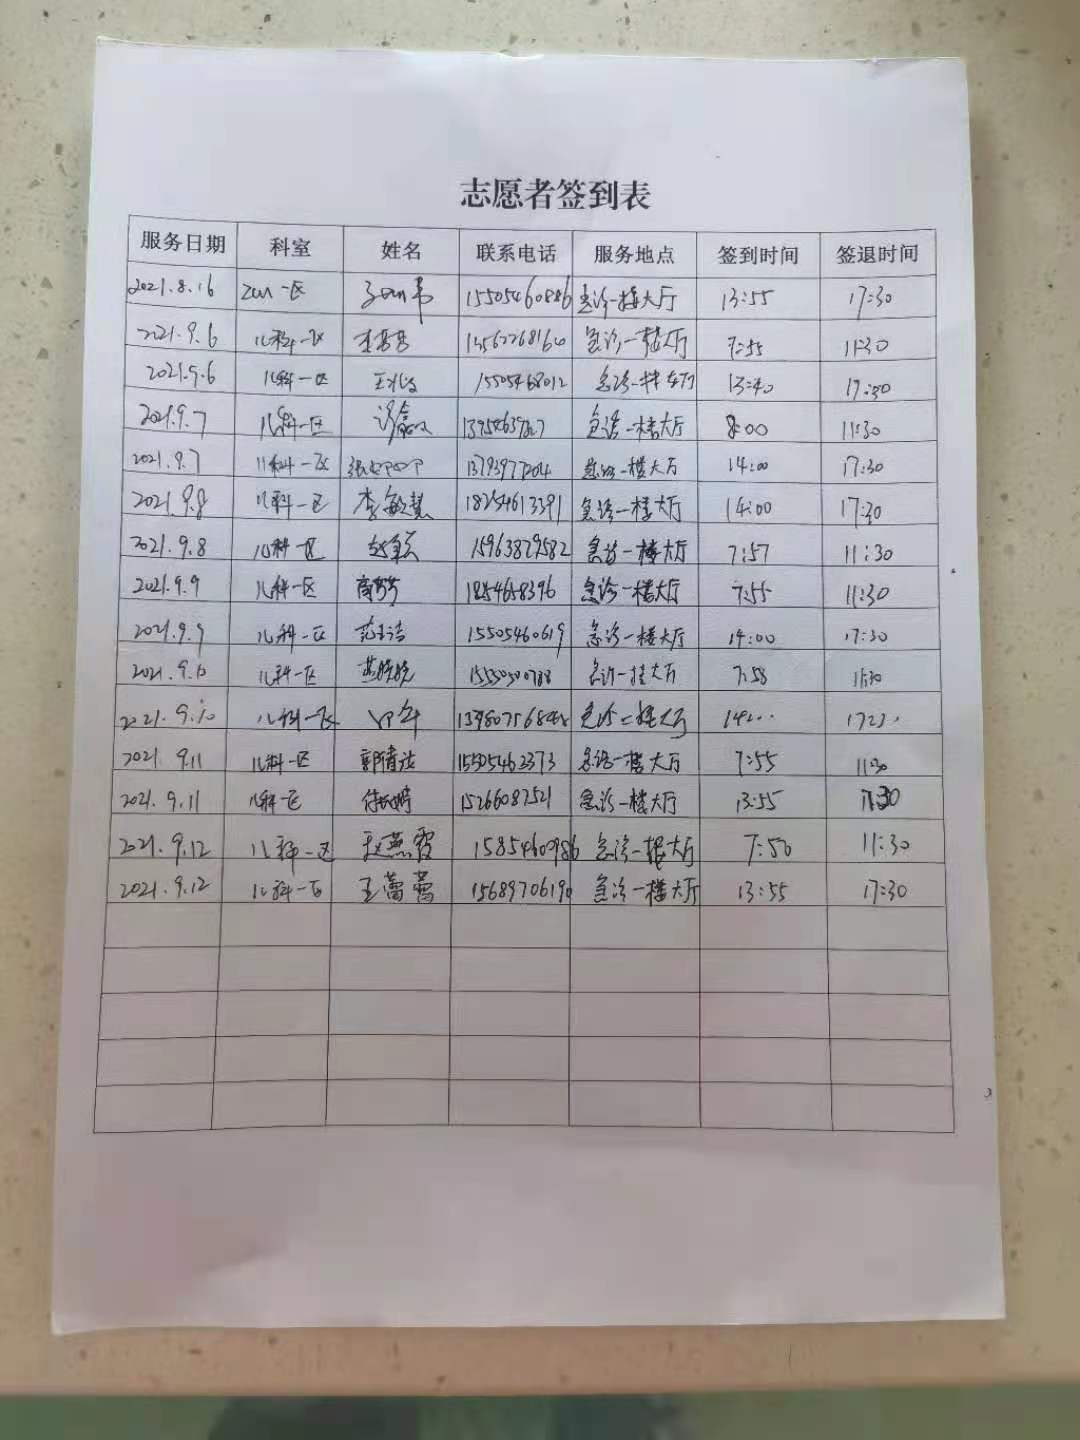 志愿者签到表
服务日期 科室 姓名 联系电话 服务地点 签到时间 签退时间
2021.8.16 一区 15505460886 急诊一楼大厅 13:55 17:30
2021.9.6 儿科一区 急诊一楼大厅 7:55 11:30
2021.9.6 儿科一区 15505468012 急诊一楼大厅 13:40 17:30
2021.9.7 儿科一区 急诊一楼大厅 8:00 11:30
2021.9.7 儿科一区 急诊一楼大厅 14:00 17:30
2021.9.8 儿科一区 李敏慧 18254613391 急诊一楼大厅 14:00 17:30
2021.9.8 儿科一区 15963829582 急诊一楼大厅 7:57 11:30
2021.9.9 儿科一区 急诊一楼大厅 7:55 11:30
2021.9.9 儿科一区 15505460619 急诊一楼大厅 14:00 17:30
2021.9.10 儿科一区 燕晓晓 急诊一楼大厅 7:58 11:30
2021.9.10 儿科一区 急诊一楼大厅
2021.9.11 儿科一区 郭清法 15505462373 急诊一楼大厅 7:55 11:30
2021.9.11 儿科一区 15266087521 急诊一楼大厅 13:55 17:30
2021.9.12 儿科一区 赵燕霞 15854600986 急诊一楼大厅 7:50 11:30
2021.9.12 儿科一区 王蕾蕾 15689706190 急诊一楼大厅 13:55 17:30